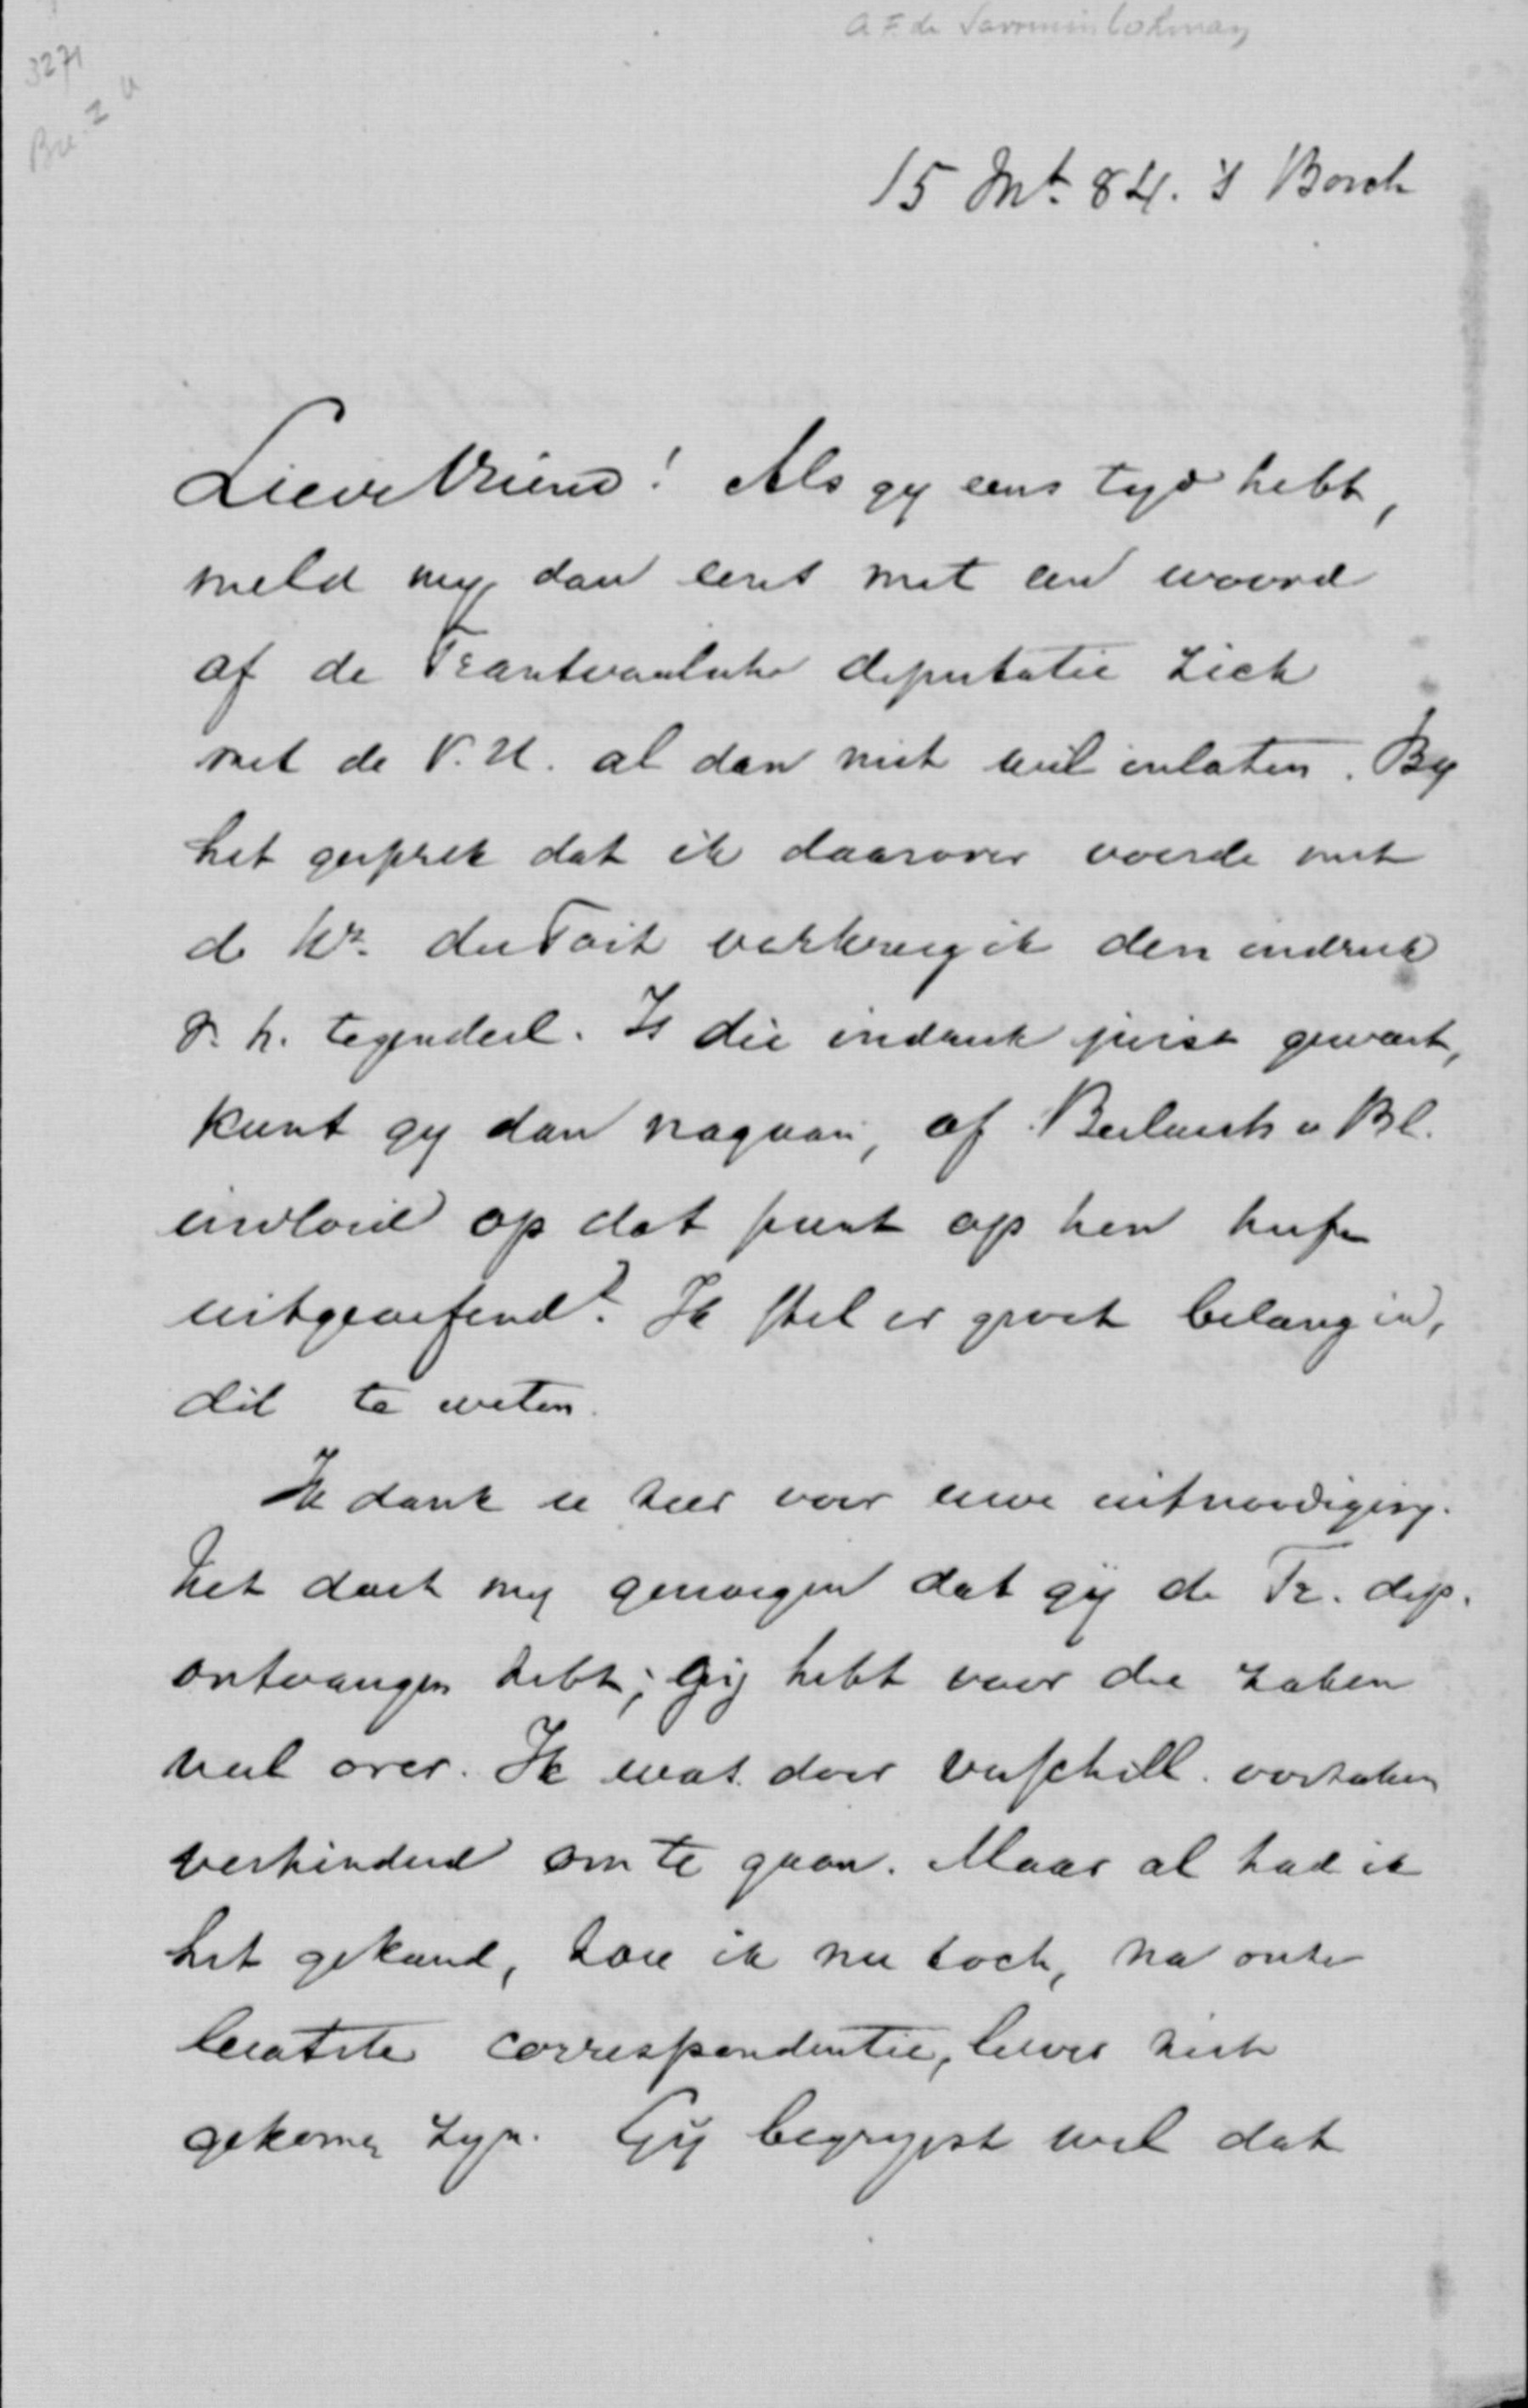 A F. de Savornin Lohman
3271
Br. 2 v
15 Mt. 84. 's Bosch
Lieve Vriend! Als gy eens tyd hebt,
meld my dan eens met een woord
of de Transvaalsche deputatie zich
met de V.U. al dan niet wil inlaten. By
het gesprek dat ik daarover voerde met
d Hr. du Toit verkreeg ik den indruk
v. h. tegendeel. Is die indruk juist geweest,
kunt gy dan nagaan, of Beelaerts v Bl.
invloed op dat punt op hen heeft
uitgeoefend? Ik stel er groot belang in,
dit te weten.
Ik dank u zeer voor uwe uitnoodiging.
Het doet my genoegen dat gÿ de Tr. dep.
ontvangen hebt; gij hebt voor die zaken
veel over. Ik was door verschill. oorzaken
verhinderd om te gaan. Maar al had ik
het gekund, zou ik nu toch, na onze
laatste correspondentie, liever niet
gekomen zyn. Gÿ begrypt wel dat